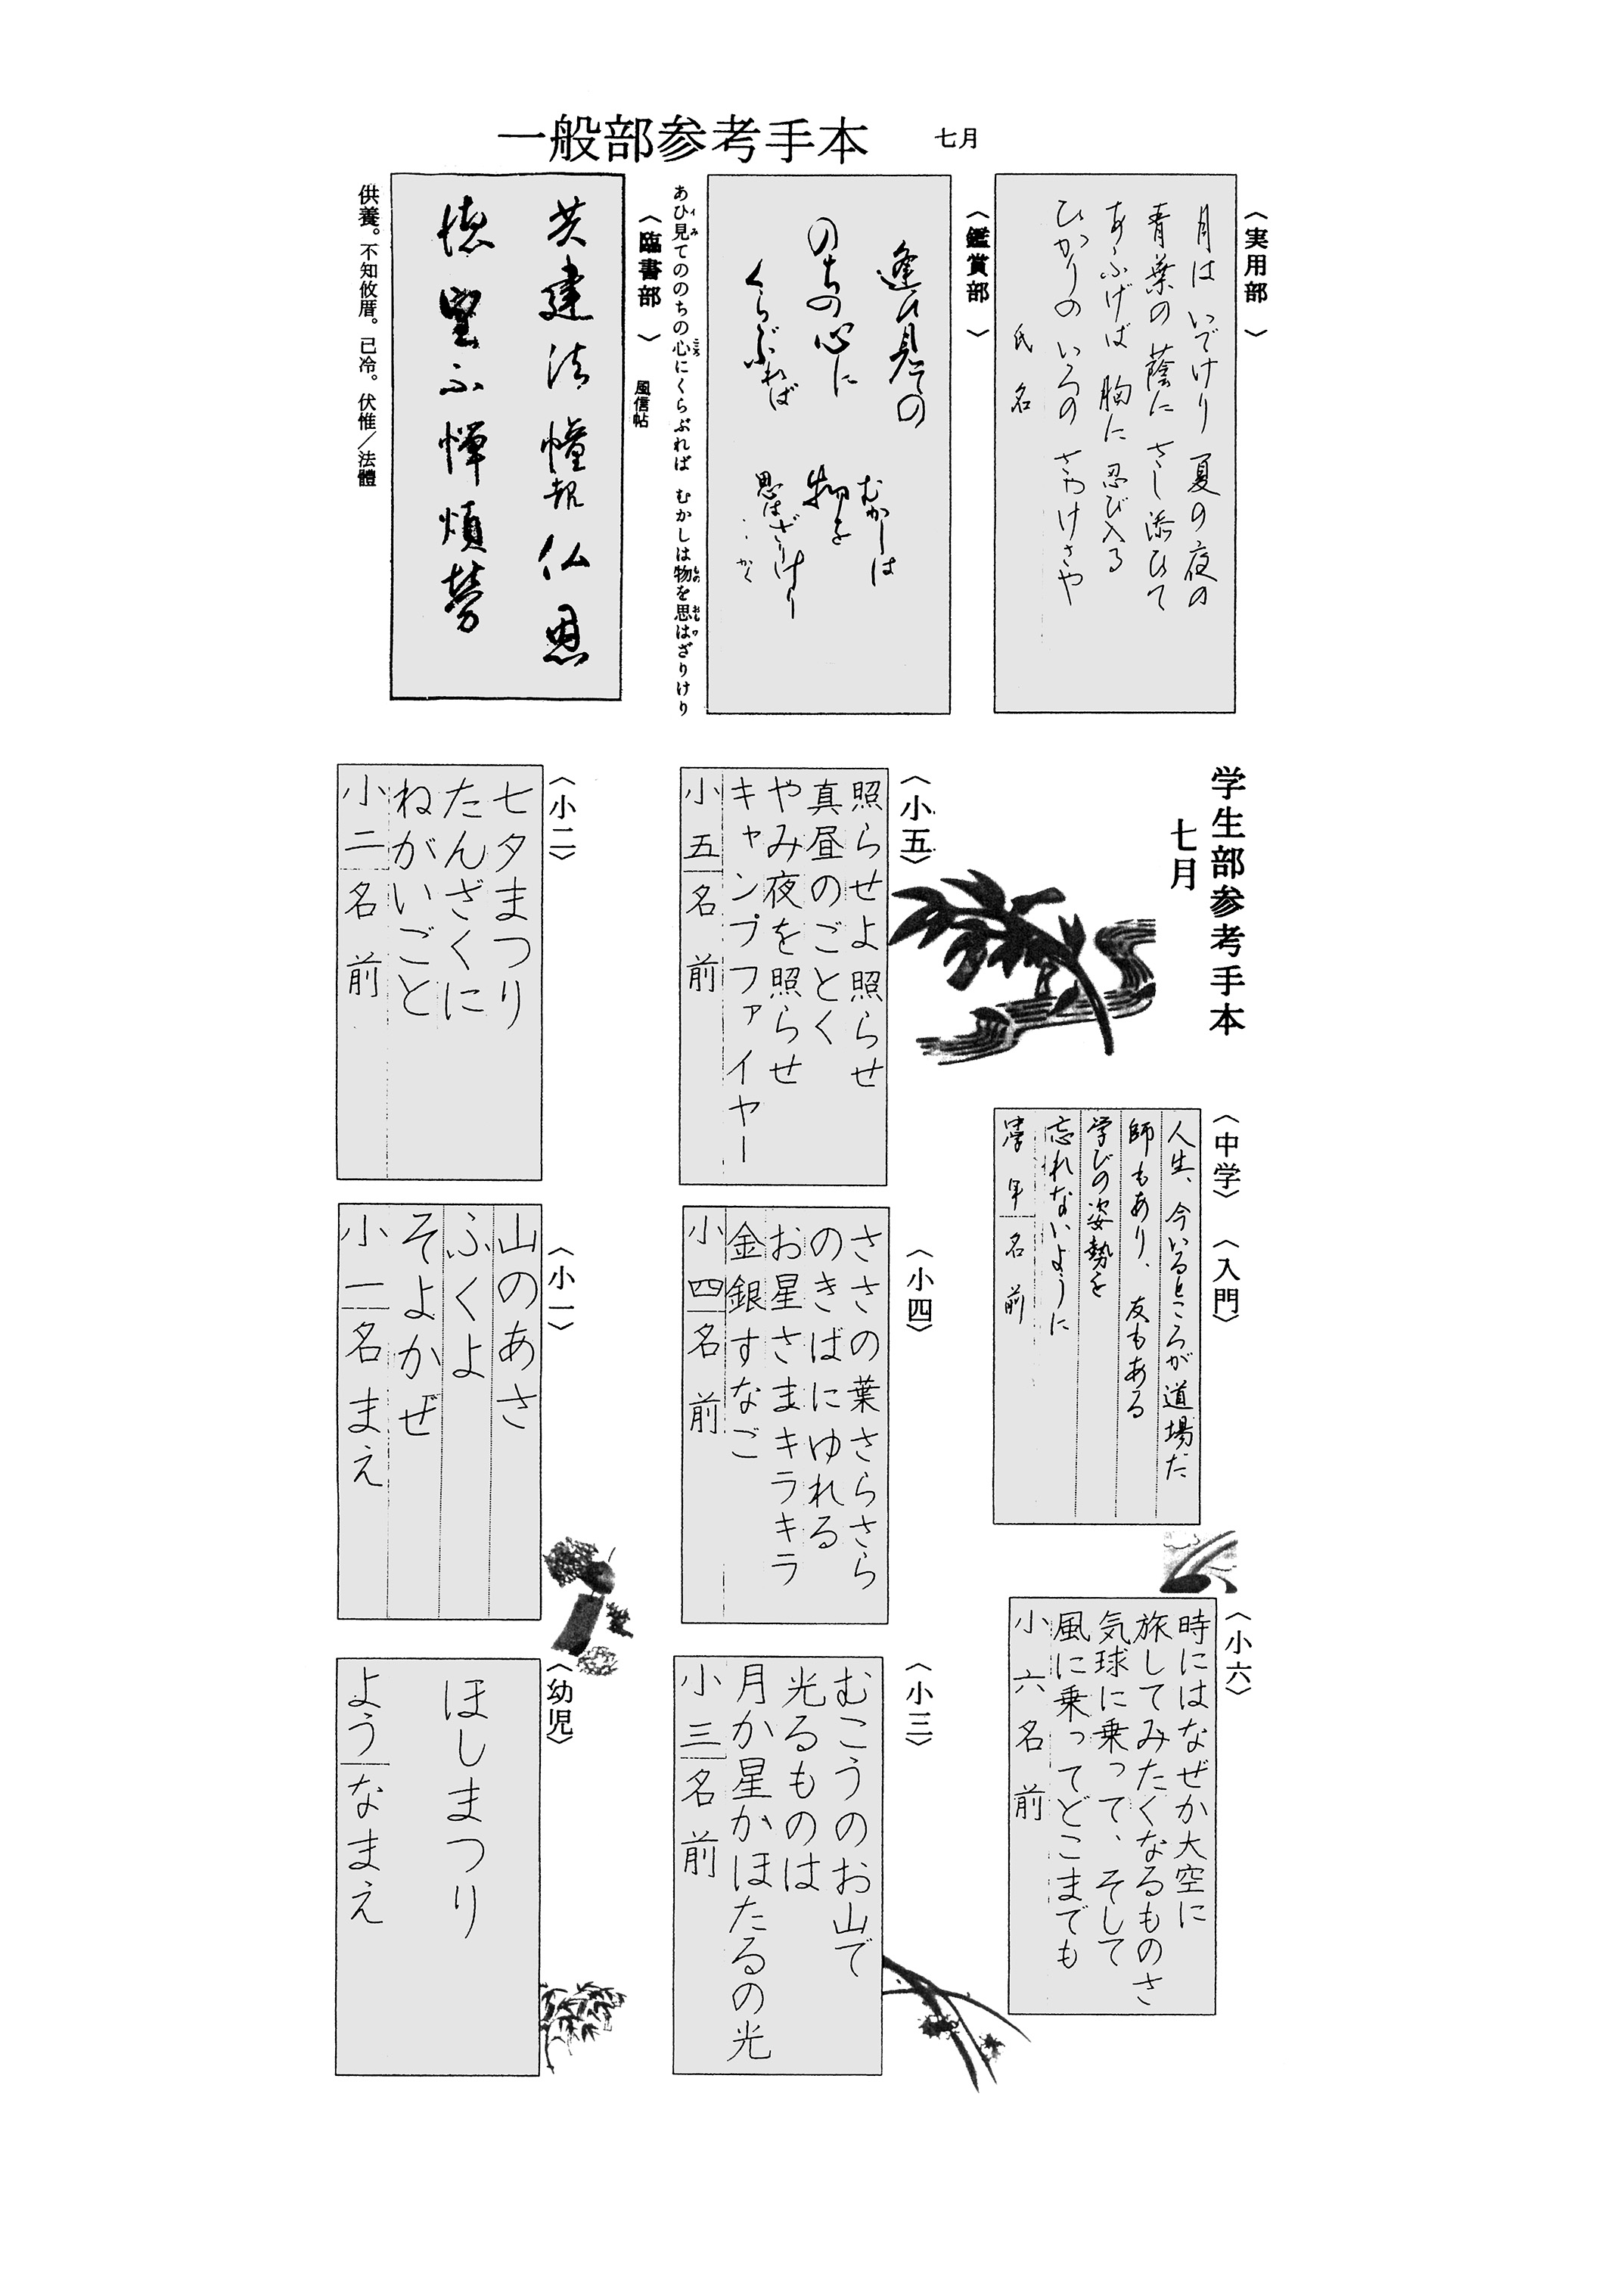 一般部参考手本 七月
〈実用部〉
月は いでけり 夏の夜の
青葉の 蔭に さし添ひて
あふげば 胸に 忍び入る
ひかりの いろの さやけさや
氏名
〈鑑賞部〉
逢ひ見ての
のちの心に
くらぶれば
むかしは
物を
思はざりけり
かく
あひ見てののちの心にくらぶれば むかしは物を思はざりけり
〈臨書部〉 風信帖
共建法幢報仏恩
徳望不憚煩勞
供養。不知攸厝。已冷。伏惟／法體
学生部参考手本
七月
〈中学〉〈入門〉
人生、今いるところが道場だ
師もあり、友もある
学びの姿勢を
忘れないように
学年 名前
〈小六〉
時にはなぜか大空に
旅してみたくなるものさ
気球に乗って、そして
風に乗ってどこまでも
小六 名前
〈小五〉
照らせよ照らせ
真昼のごとく
やみ夜を照らせ
キャンプファイヤー
小五 名前
〈小四〉
ささの葉さらさら
のきばにゆれる
お星さまキラキラ
金銀すなご
小四 名前
〈小三〉
むこうのお山で
光るものは
月か星かほたるの光
小三 名前
〈小二〉
七夕まつり
たんざくに
ねがいごと
小二 名前
〈小一〉
山のあさ
ふくよ
そよかぜ
小一 名まえ
〈幼児〉
ほしまつり
よう なまえ